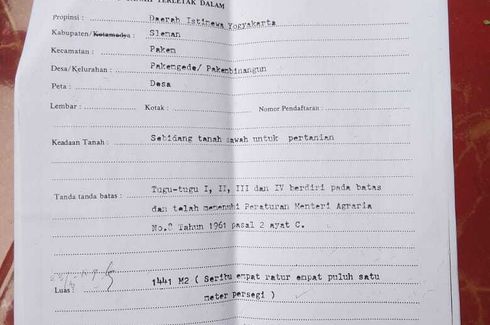 TANAH TERLETAK DALAM
Propinsi : Daerah Istinewa Yogyakarta
Kabupaten/Kotamadya : Sleman
Kecamatan : Pakem
Desa/Kelurahan : Pakemgede/ Pakembinangun
Peta : Desa
Lembar : Kotak : Nomor Pendaftaran :
Keadaan Tanah : Sebidang tanah sawah untuk pertanian
Tanda tanda batas : Tugu-tugu I, II, III dan IV berdiri pada batas
dan telah memenuhi Peraturan Menteri Agraria
No.8 Tahun 1961 pasal 2 ayat C.
Luas : 1441 M2 ( Seribu empat ratur empat puluh satu
meter persegi )